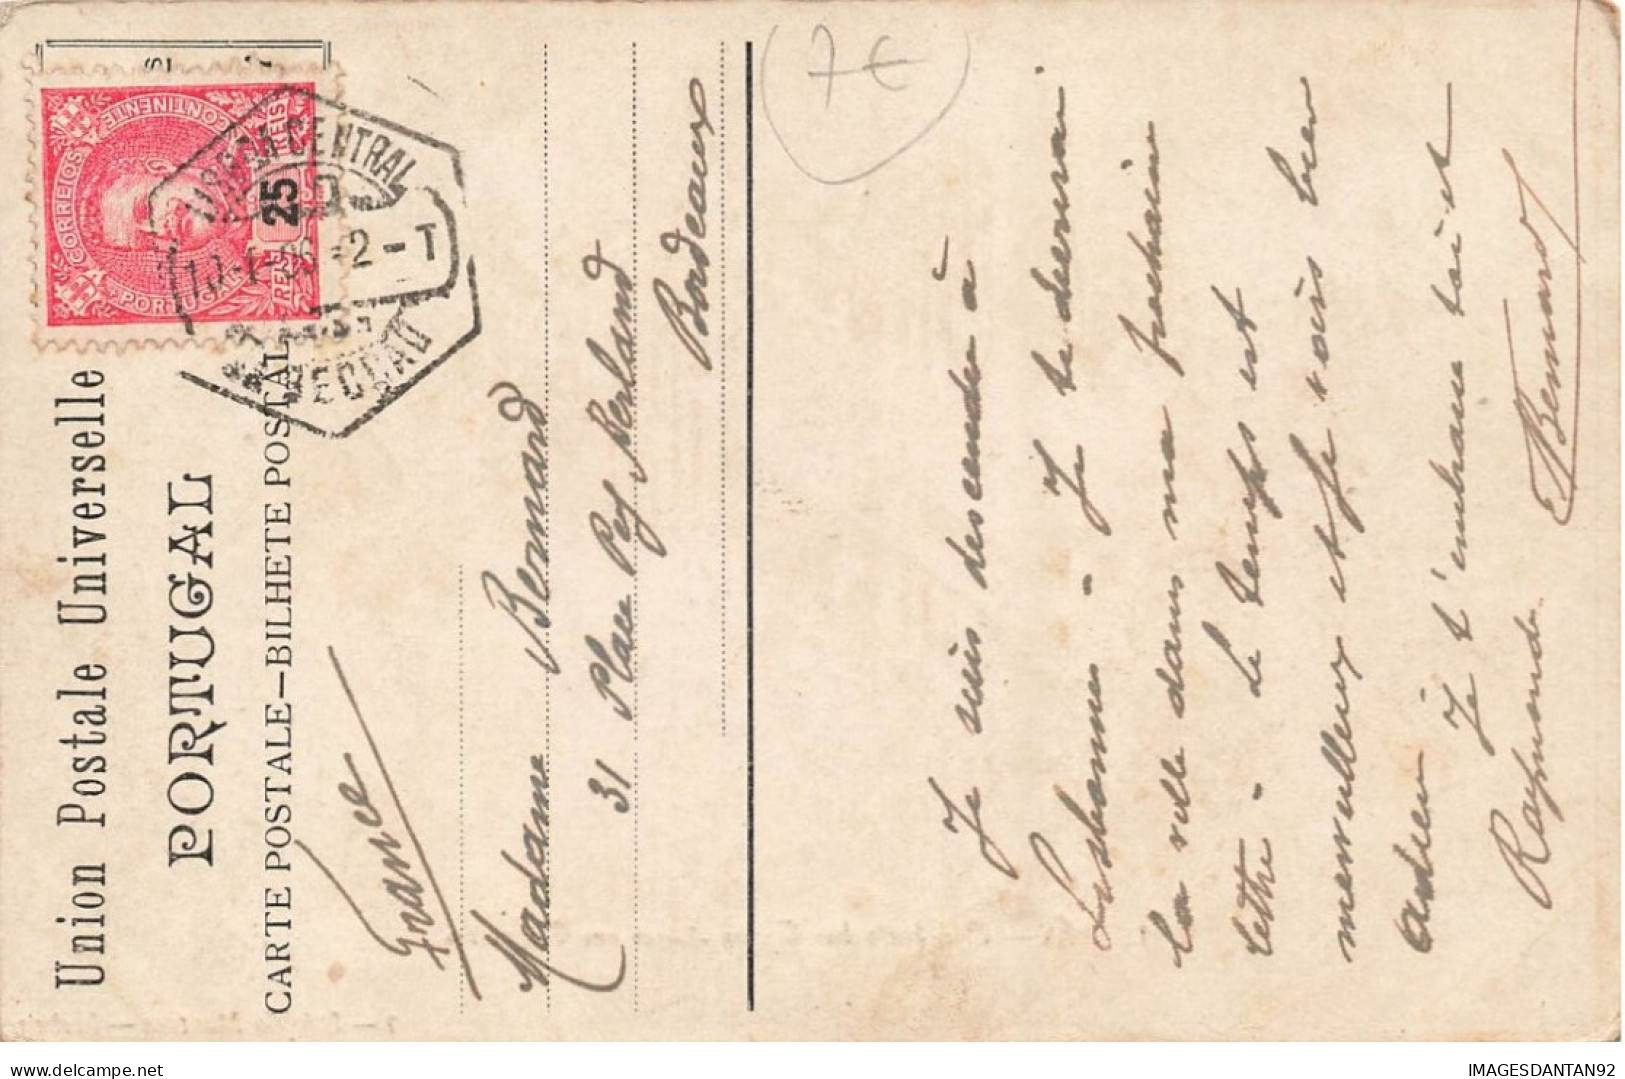 Union Postale Universelle
PORTUGAL
CARTE POSTALE—BILHETE POSTAL
CORREIOS
CONTINENTE
PORTUGAL
REIS
25
LISBOA CENTRAL
2-T
SECÇÃO
France
Madame Bernard
31 Place Pey Berland
Bordeaux
7 €
Je suis descendu à
Lisbonne - Je te decrirai
la ville dans ma prochaine
lettre - Le temps est
merveilleux et je vais bien
Je t'embrasse toi et
Raymonde
Bernard
IMAGESDANTAN92